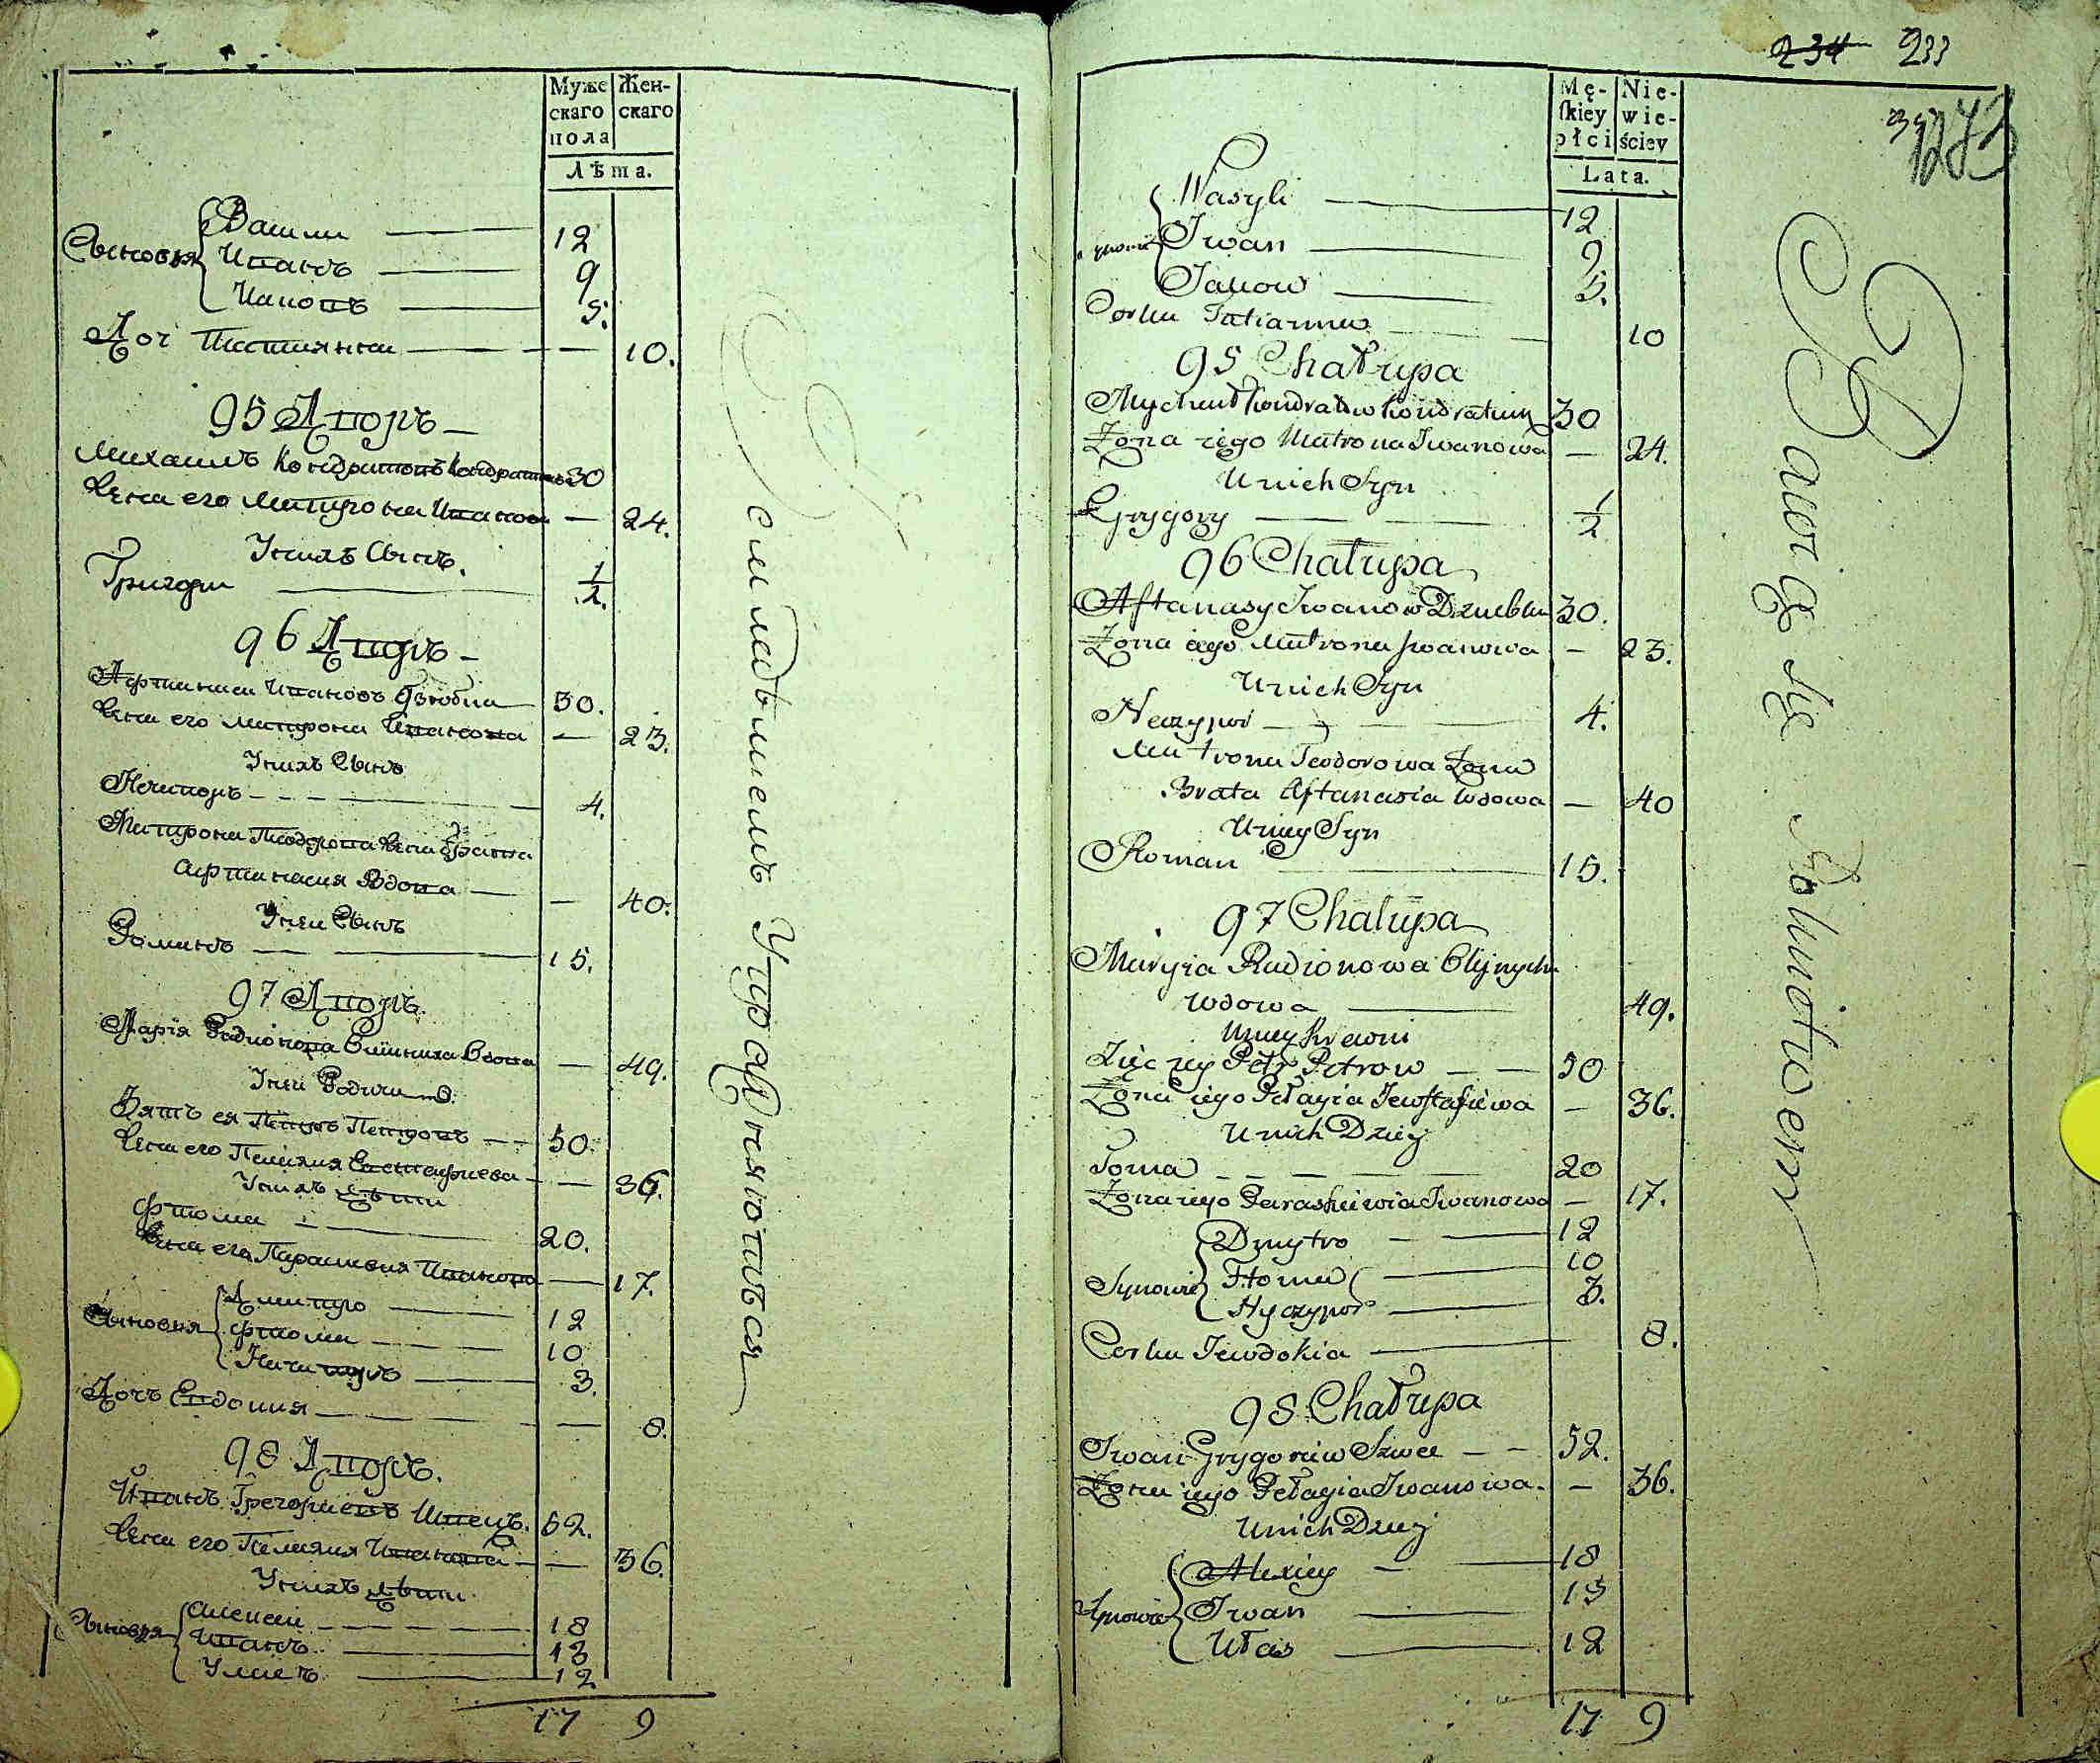 Муже
скаго
пола
Жен-
скаго
Лѣта.
Сыновья
Васили 12
Иванъ 9
Иаковъ 5.
Доч Татияна 10.
95 Дворъ
Михаилъ Кондратовъ Кондратюкъ 30
Жена его Матрона Иванова 24.
У нихъ Сынъ.
Григори 1/2.
96 Дворъ
Афтанаси Ивановъ Дзюбка 30.
Жена его Матрона Иванова 23.
У нихъ Сынъ
Нечипоръ 4.
Матрона Теодорова Жена Брата
Афтанасия Вдова 40.
У неи Сынъ
Романъ 15.
97 Дворъ
Марія Радионова Олииниха Вдова 49.
У неи Родичи
Зять ея Петръ Петровъ 50.
Жена его Пелагия Евстафиева 36.
У нихъ Дѣти
Фтома 20.
Жена его Парасквия Иванова 17.
Сыновья
Дмитро 12
Фтома 10
Ничипоръ 3.
Дочъ Евдокия 8.
98 Дворъ.
Иванъ Грегориевъ Швецъ. 52.
Жена его Пелагия Иванова 36.
У нихъ Дѣти
Сыновья
Алексеи 18
Иванъ 13
Улasъ 12
17 9
С им ладѣтелемъ Управняютъся
234 233
Mę-
skiey
płci
Nie-
wie-
ściey
Lata.
Synowie
Wasyli 12
Iwan 9
Jakow 5.
Corka Tatianna 10
95 Chałupa
Mychał Kondratów Kondratiuk 30
Żona iego Matrona Iwanowa 24.
U nich Syn
Grygory 1/2
96 Chałupa
Aftanasy Iwanow Dziubka 30.
Żona iego Matrona Iwanowa 23.
U nich Syn
Neczypor 4.
Matrona Teodorowa Żona
Brata Aftanasia Wdowa 40
U niey Syn
Roman 15.
97 Chałupa
Maryia Radionowa Olijnycha
Wdowa 49.
U niey Krewni
Zięć iey Petr Petrow 50
Żona iego Pełagia Jewstafiewa 36.
U nich Dziej
Toma 20
Żona iego Paraskiewia Iwanowa 17.
Synowie
Dmytro 12
Ftoma 10
Nyczypor 3.
Corka Iewdokia 8.
98 Chałupa
Iwan Grygoriiw Szwec 52.
Żona iego Pełagia Iwanowa. 36.
U nich Dziej
Synowie
Alexiey 18
Iwan 13
Ułas 12
17 9
Bawią się Rolnictwem